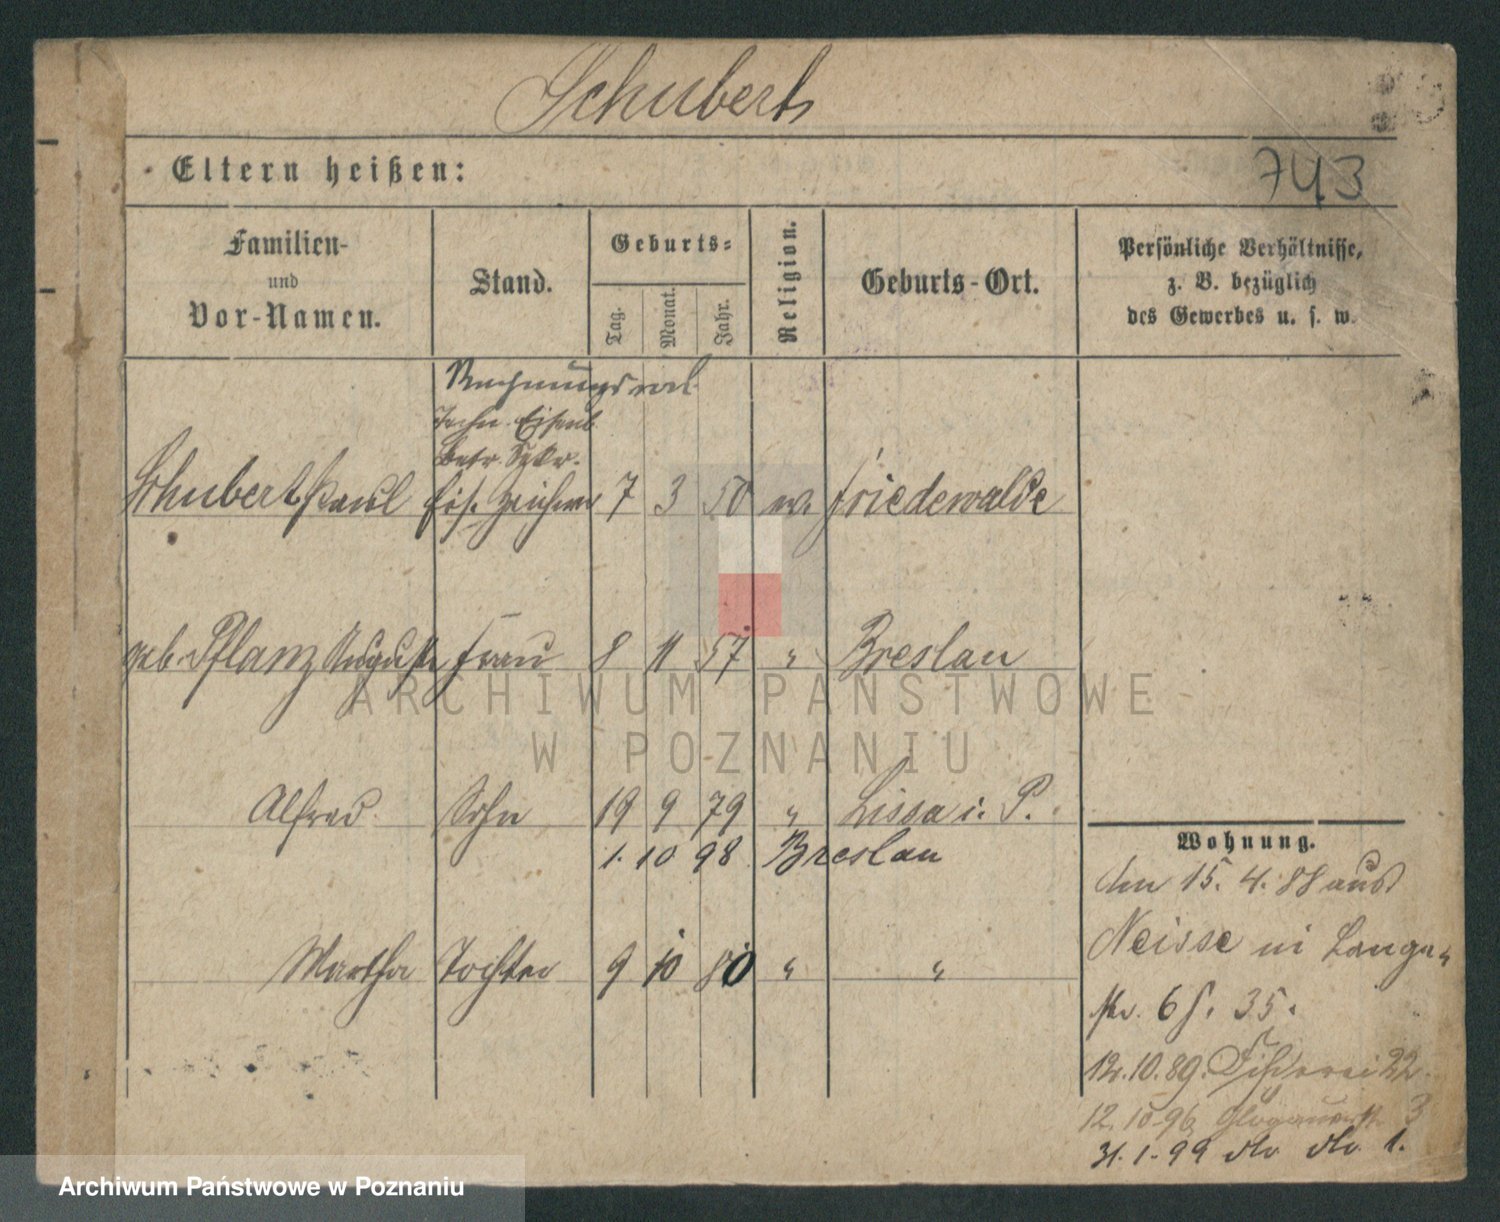 Schubert
Eltern heißen:
743
Familien-
und
Vor-Namen.
Stand.
Geburts-
Tag.
Monat.
Jahr.
Religion.
Geburts-Ort.
Persönliche Verhältnisse,
z. B. bezüglich
des Gewerbes u. s. w.
Rechnungsrat
Techn. Eisenb.
Betr. Sekr.
Schubert Paul Eis. Zeichner 7 3 50 ev. Friedewalde
geb. Pflanz Auguste Frau 8 11 57 " Breslau
ARCHIWUM PAŃSTWOWE
W POZNANIU
Alfred Sohn 19 9 79 " Lissa i. P.
1. 10 98 Breslau
Martha Tochter 9 10 80 " "
Wohnung.
Am 15. 4. 88 aus
Neisse in Lange
str. 6 35.
12.10.89. Fischerei 22.
12.10.96 Glogauerstr. 3
31.1.99 dto dto 1.
Archiwum Państwowe w Poznaniu